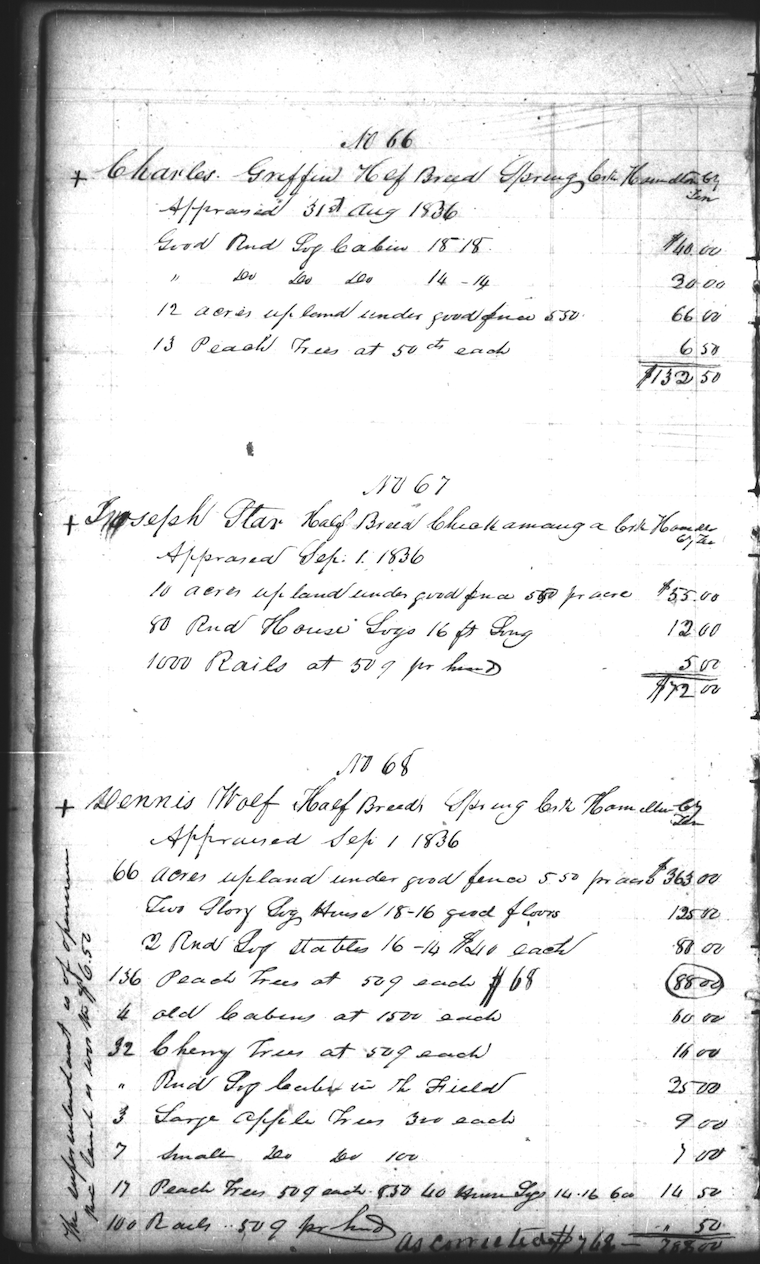 No 66
+ Charles. Griffin Half Breed Spring Crk Hamilton Cty Ten
Appraised 31st Aug 1836
Good Rnd Log Cabin 18-18. $40.00
" Do Do Do 14-14 20.00
12 acres upland under good fence 550. 66 00
13 Peach Trees at 50 cts each 6 50
$132 50
No 67
+ Joseph Star Half Breed Chickamauga Crk Hamil Cty Ten
Appraised Sep. 1. 1836
10 acres upland under good fence 550 pr acre $55.00
80 Rnd House Logs 16 ft Long 12 00
1000 Rails at 50 ¢ pr hund 5 00
$72 00
No 68
+ Dennis Wolf Half Breed Spring Crk Hamilton Cty Ten
Appraised Sep 1 1836
66 acres upland under good fence 5 50 pr acre $363 00
Two Story Log House 18-16 good floors 125 00
2 Rnd Log stables 16-14 $40 each 80 00
136 Peach Trees at 50¢ each $68 88 00
4 old Cabins at 1500 each 60 00
32 Cherry Trees at 50¢ each 16 00
" Rnd Log Cabin in the Field 25 00
3 Large apple Trees 300 each 9 00
7 Small Do Do 100 7 00
17 Peach Trees 50¢ each 850 40 House Logs 14-16 600 14 50
100 Rails .. 50 ¢ pr hund " 50
as corrected $768 — 788 00
The superintendant is of openion
the land is wor th $6.50